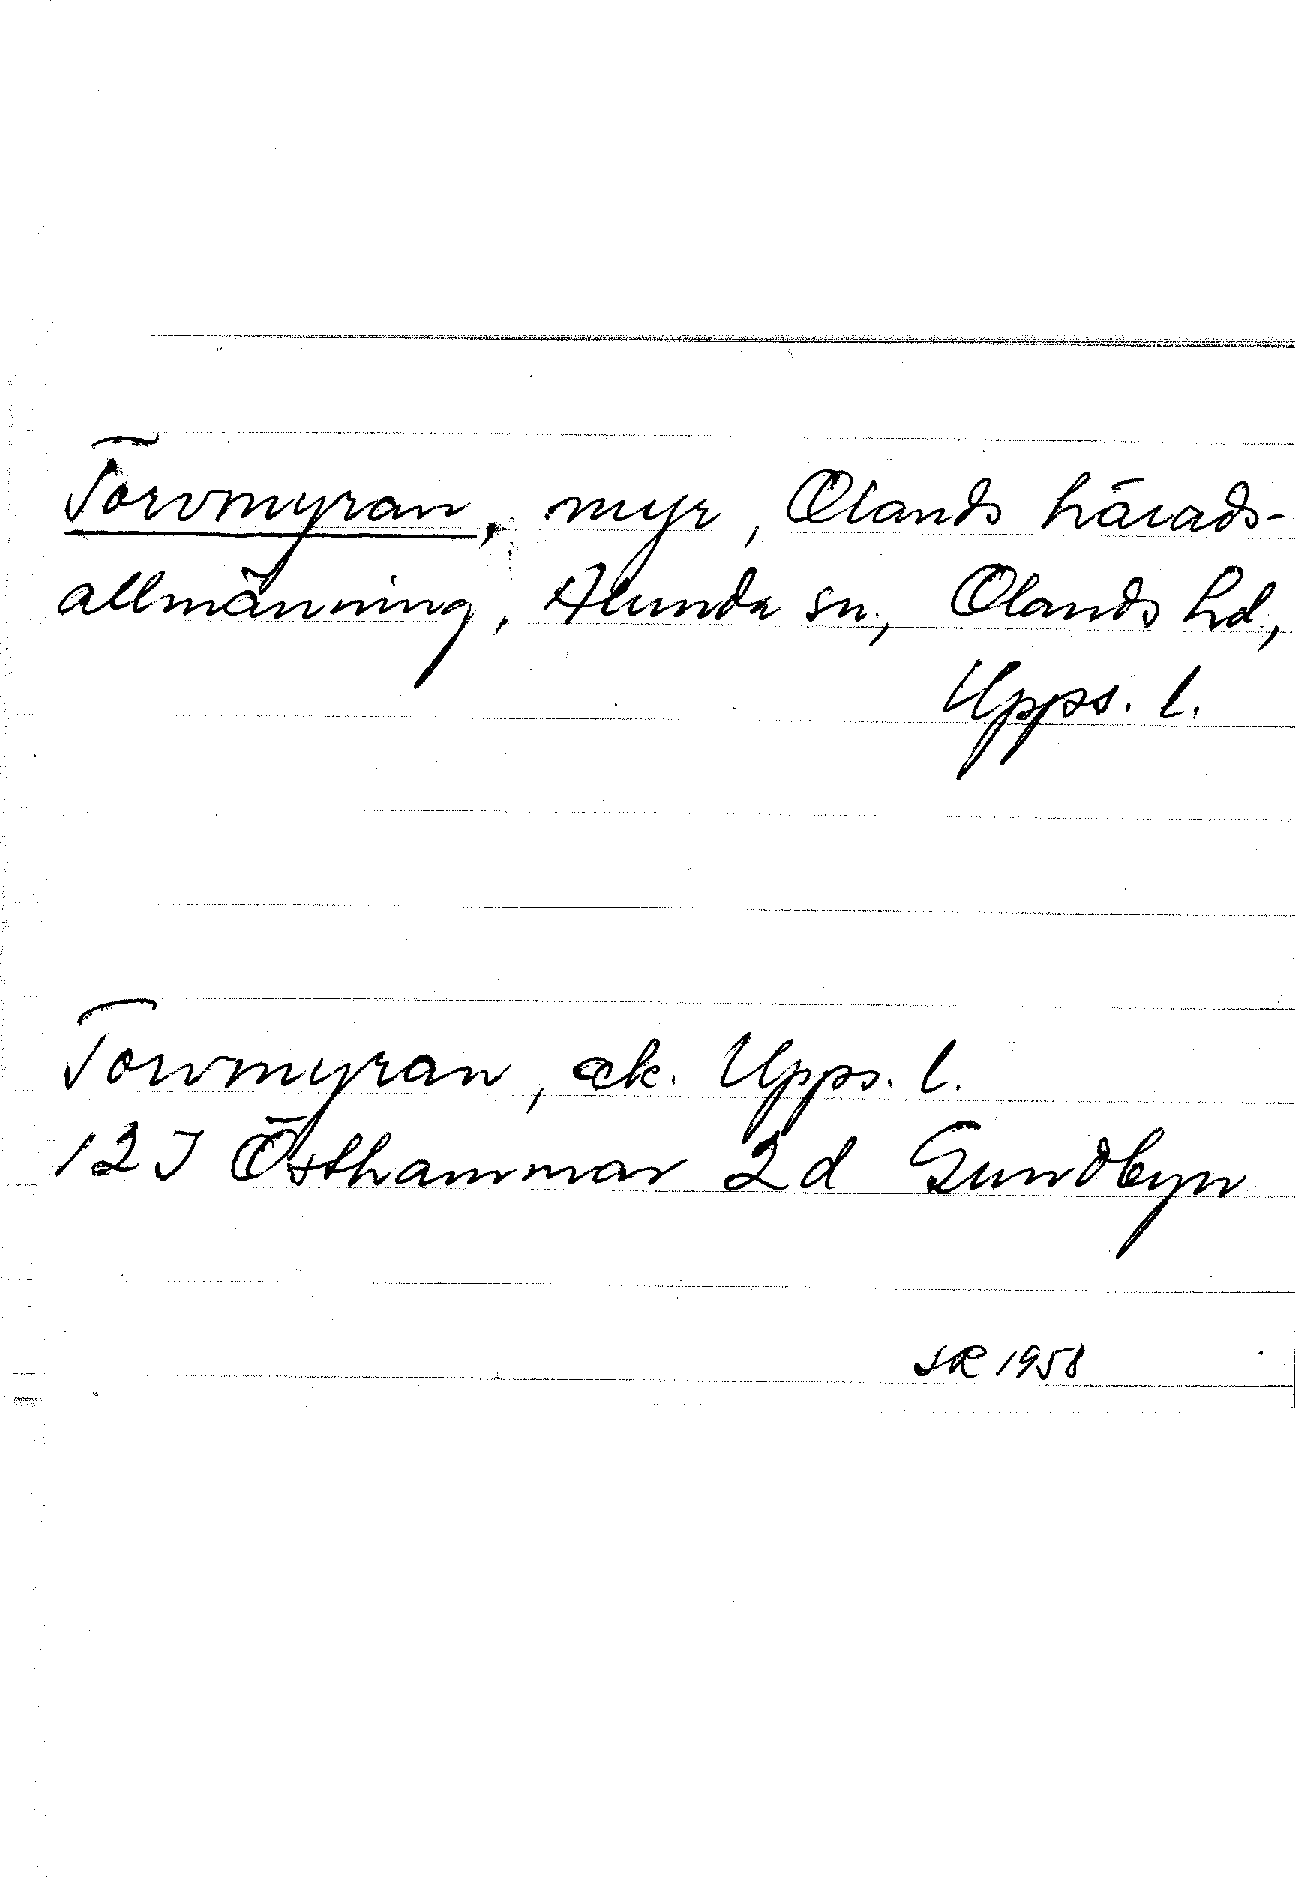 Torvmyran, myr, Olands härads-
allmänning, Alunda sn, Olands hd,
Upps. l.
Torvmyran, ek. Upps. l.
12 I Östhammar 2d Sundbyn
SR 1958